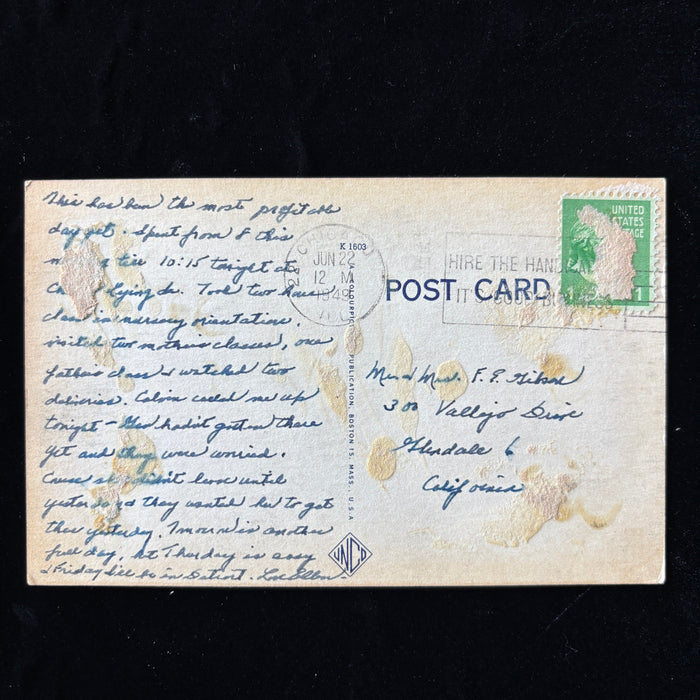 This has been the most profitable
day yet. Spent from 8 this
till 10:15 tonight at
Lying In. Took two hour
class in nursery orientation,
visited two mothers classes, one
fathers class & watched two
deliveries. Calvin called me up
tonight – hadn't gotten there
yet and they were worried.
Cause she didn't leave until
yesterday & they wanted her to get
there yesterday. Tomorrow is another
full day, but Thursday is easy
& Friday I'll be in Detroit. Love
K 1603
CHICAGO
JUN 22
12 M
1949
HIRE THE HANDICAPPED
IT'S GOOD BUSINESS
UNITED
STATES
AGE
1
POST CARD
COLOURPICTURE PUBLICATION, BOSTON 15, MASS., U.S.A.
Mr and Mrs. F. E. Gibson
300 Vallejo Drive
Glendale 6
California